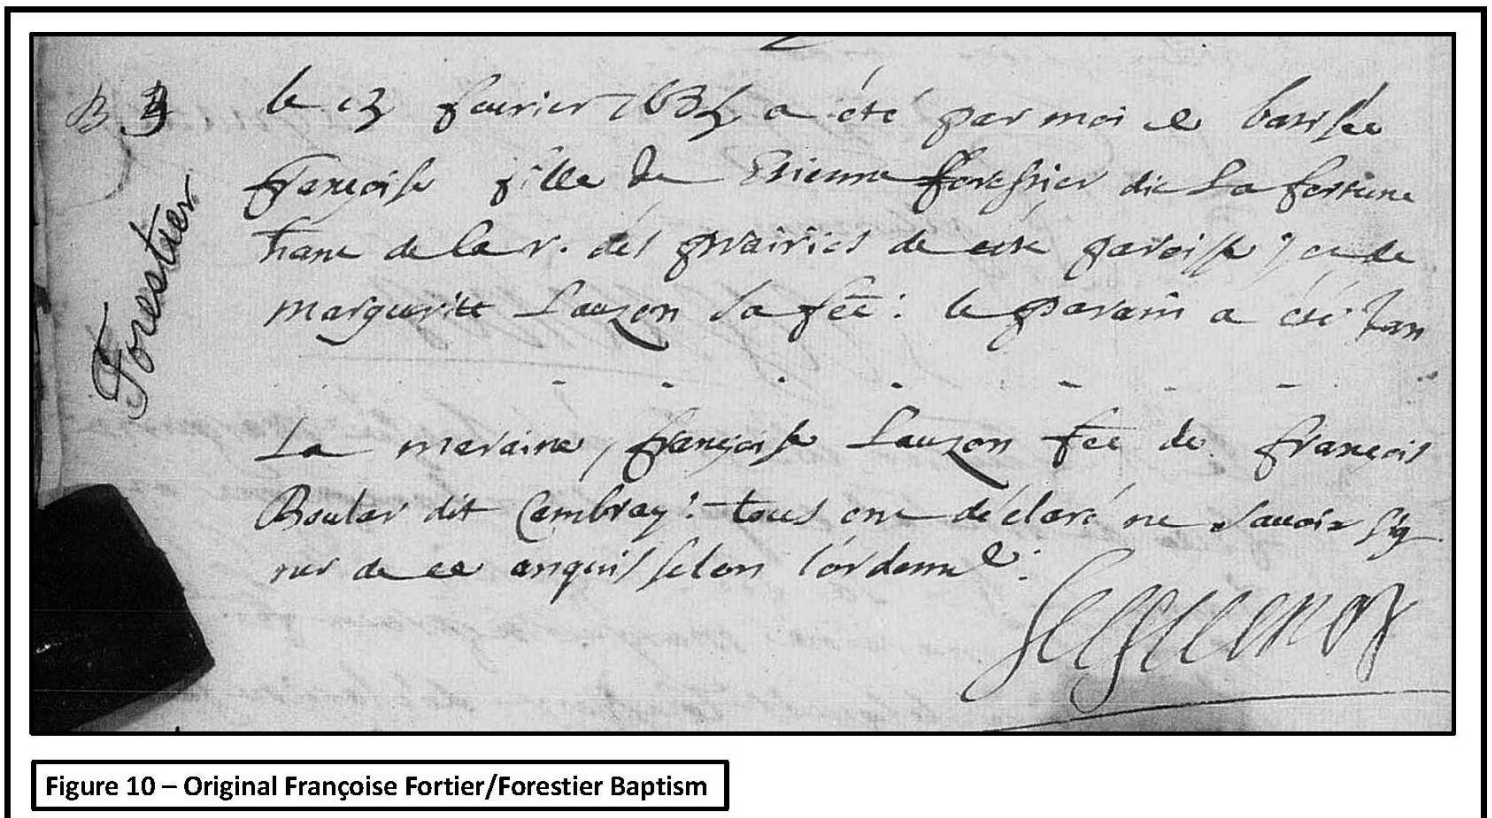 B
Forestier
le 13 feurier 1695 a été par moi baptisée
françoise fille de Etienne forestier dit La fortune
hant de la r. des prairies de cete paroisse, et de
margueritt Lauzon sa fēe : le parain a été Jan
- - - - - - - -
La maraine, françoise Lauzon fēe de françois
Boular dit Cambray : tous ont déclaré ne sauoir sig
ner de ce enquis selon l'ordonn e.
Figure 10 – Original Françoise Fortier/Forestier Baptism